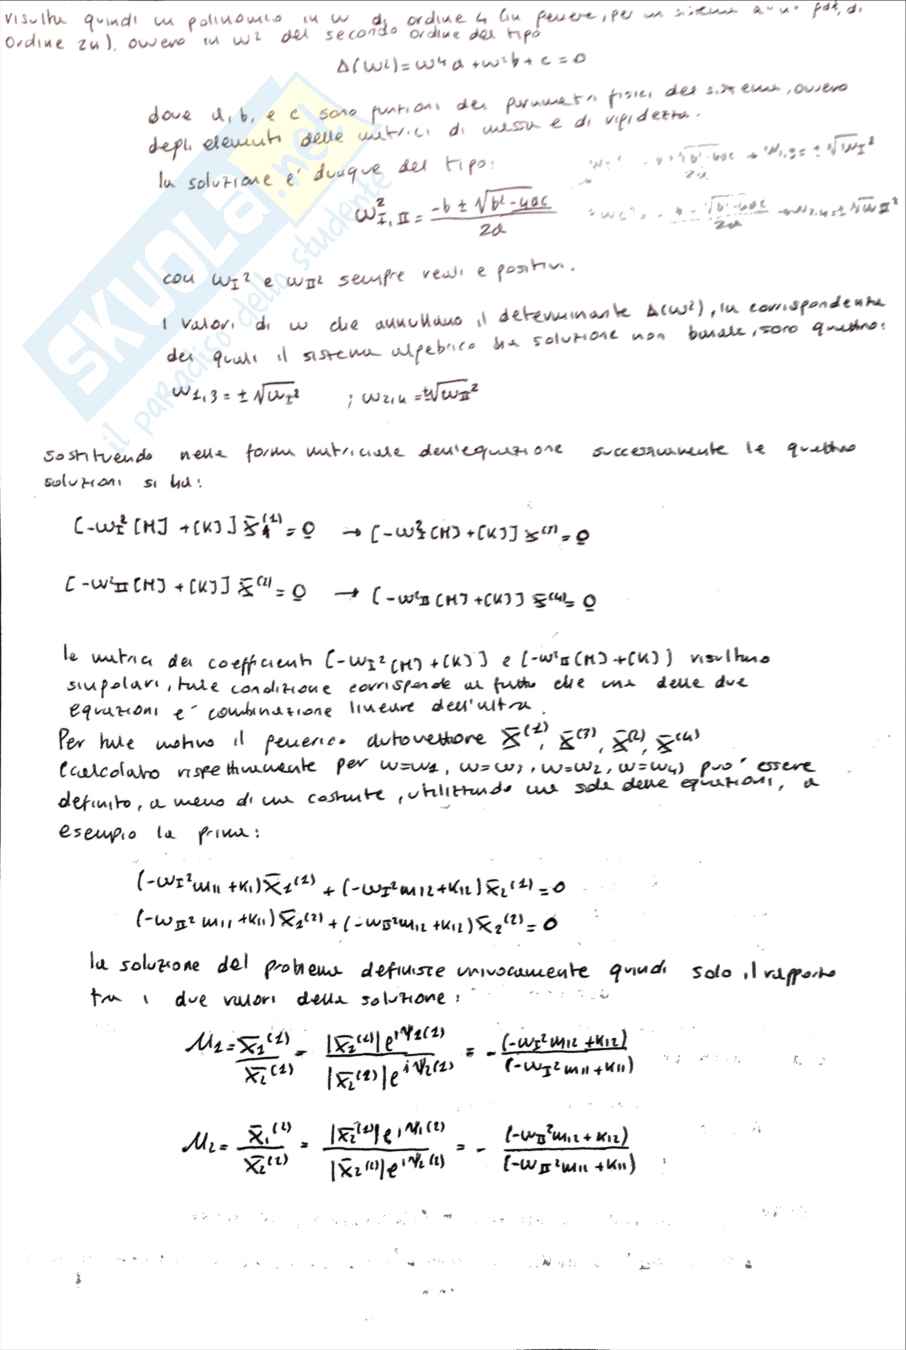 risulta quindi un polinomio in ω di ordine 4 (in genere, per un sistema a n gdl, di
ordine 2n), ovvero in ω² del secondo ordine del tipo
Δ(ω²)=ω⁴a+ω²b+c=0
dove a, b, e c sono funzioni dei parametri fisici del sistema, ovvero
degli elementi delle matrici di massa e di rigidezza.
la soluzione e' dunque del tipo:
ω²I,II = (-b ± √(b²-4ac))/2a
con ωI² e ωII² sempre reali e positivi.
i valori di ω che annullano il determinante Δ(ω²), in corrispondenza
dei quali il sistema algebrico ha soluzione non banale, sono quattro:
ω1,3 = ± √ωI² ; ω2,4 = ±√ωII²
sostituendo nella forma matriciale dell'equazione successivamente le quattro
soluzioni si ha:
[-ωI²[M]+[K]] X̄⁽¹⁾=0 → [-ωI²[M]+[K]] X̄⁽³⁾=0
[-ω²II[M]+[K]] X̄⁽²⁾=0 → [-ω²II[M]+[K]] X̄⁽⁴⁾=0
le matrici dei coefficienti [-ωI²[M]+[K]] e [-ω²II[M]+[K]] risultano
singolari, tale condizione corrisponde al fatto che una delle due
equazioni e' combinazione lineare dell'altra.
Per tale motivo il generico autovettore X̄⁽¹⁾, X̄⁽³⁾, X̄⁽²⁾, X̄⁽⁴⁾
(calcolato rispettivamente per ω=ω1, ω=ω3, ω=ω2, ω=ω4) puo' essere
definito, a meno di una costante, utilizzando una sola delle equazioni, a
esempio la prima:
(-ωI²m11+K1)X̄1⁽¹⁾+(-ωI²m12+K12)X̄2⁽¹⁾=0
(-ωII²m11+K11)X̄1⁽²⁾+(-ωII²m12+K12)X̄2⁽²⁾=0
la soluzione del problema definisce univocamente quindi solo il rapporto
tra i due valori della soluzione:
μ1 = X̄1⁽¹⁾/X̄2⁽¹⁾ = |X̄2⁽¹⁾|e^iψ1(1) / |X̄2⁽¹⁾|e^iψ2(1) = - (-ωI²m12+K12)/(-ωI²m11+K11)
μ2 = X̄1⁽²⁾/X̄2⁽²⁾ = |X̄2⁽²⁾|e^iψ1(2) / |X̄2⁽²⁾|e^iψ2(2) = - (-ωII²m12+K12)/(-ωII²m11+K11)
SKUOLA.net
il paradiso dello studente